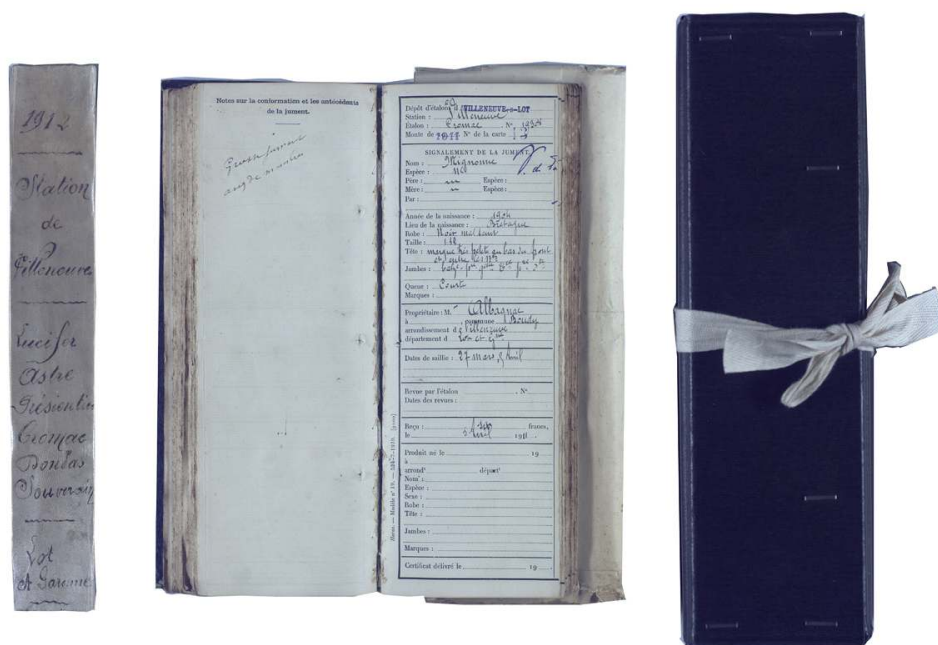 1912
Station
de
Villeneuve
Lucifer
Astre
Cromac
Souverain
Lot
et Garonne
Notes sur la conformation et les antécédents
de la jument.
Grosse jument
Dépôt d'étalons VILLENEUVE-s-LOT
Station : Villeneuve
Étalon : Cromac N°
Monte de 1911 N° de la carte : 17
SIGNALEMENT DE LA JUMENT.
Nom : Mignonne
Espèce :
Père : Espèce :
Mère : Espèce :
Par :
Année de la naissance : 1904
Lieu de la naissance : Bretagne
Robe : Noir mal teint
Taille :
Tête : marque très petite au bas du front
Jambes :
Queue : Courte
Marques :
Propriétaire : M. Albagnac
à commune Boudy
arrondissement d Villeneuve
département d Lot et Gne
Dates de saillie : 27 mars, 5 Avril
Revue par l'étalon . N°
Dates des revues :
Reçu : francs,
le 5 Avril 1911.
Produit né le 19
à
arrondt départt
Nom :
Espèce :
Sexe :
Robe :
Tête :
Jambes :
Marques :
Certificat délivré le 19